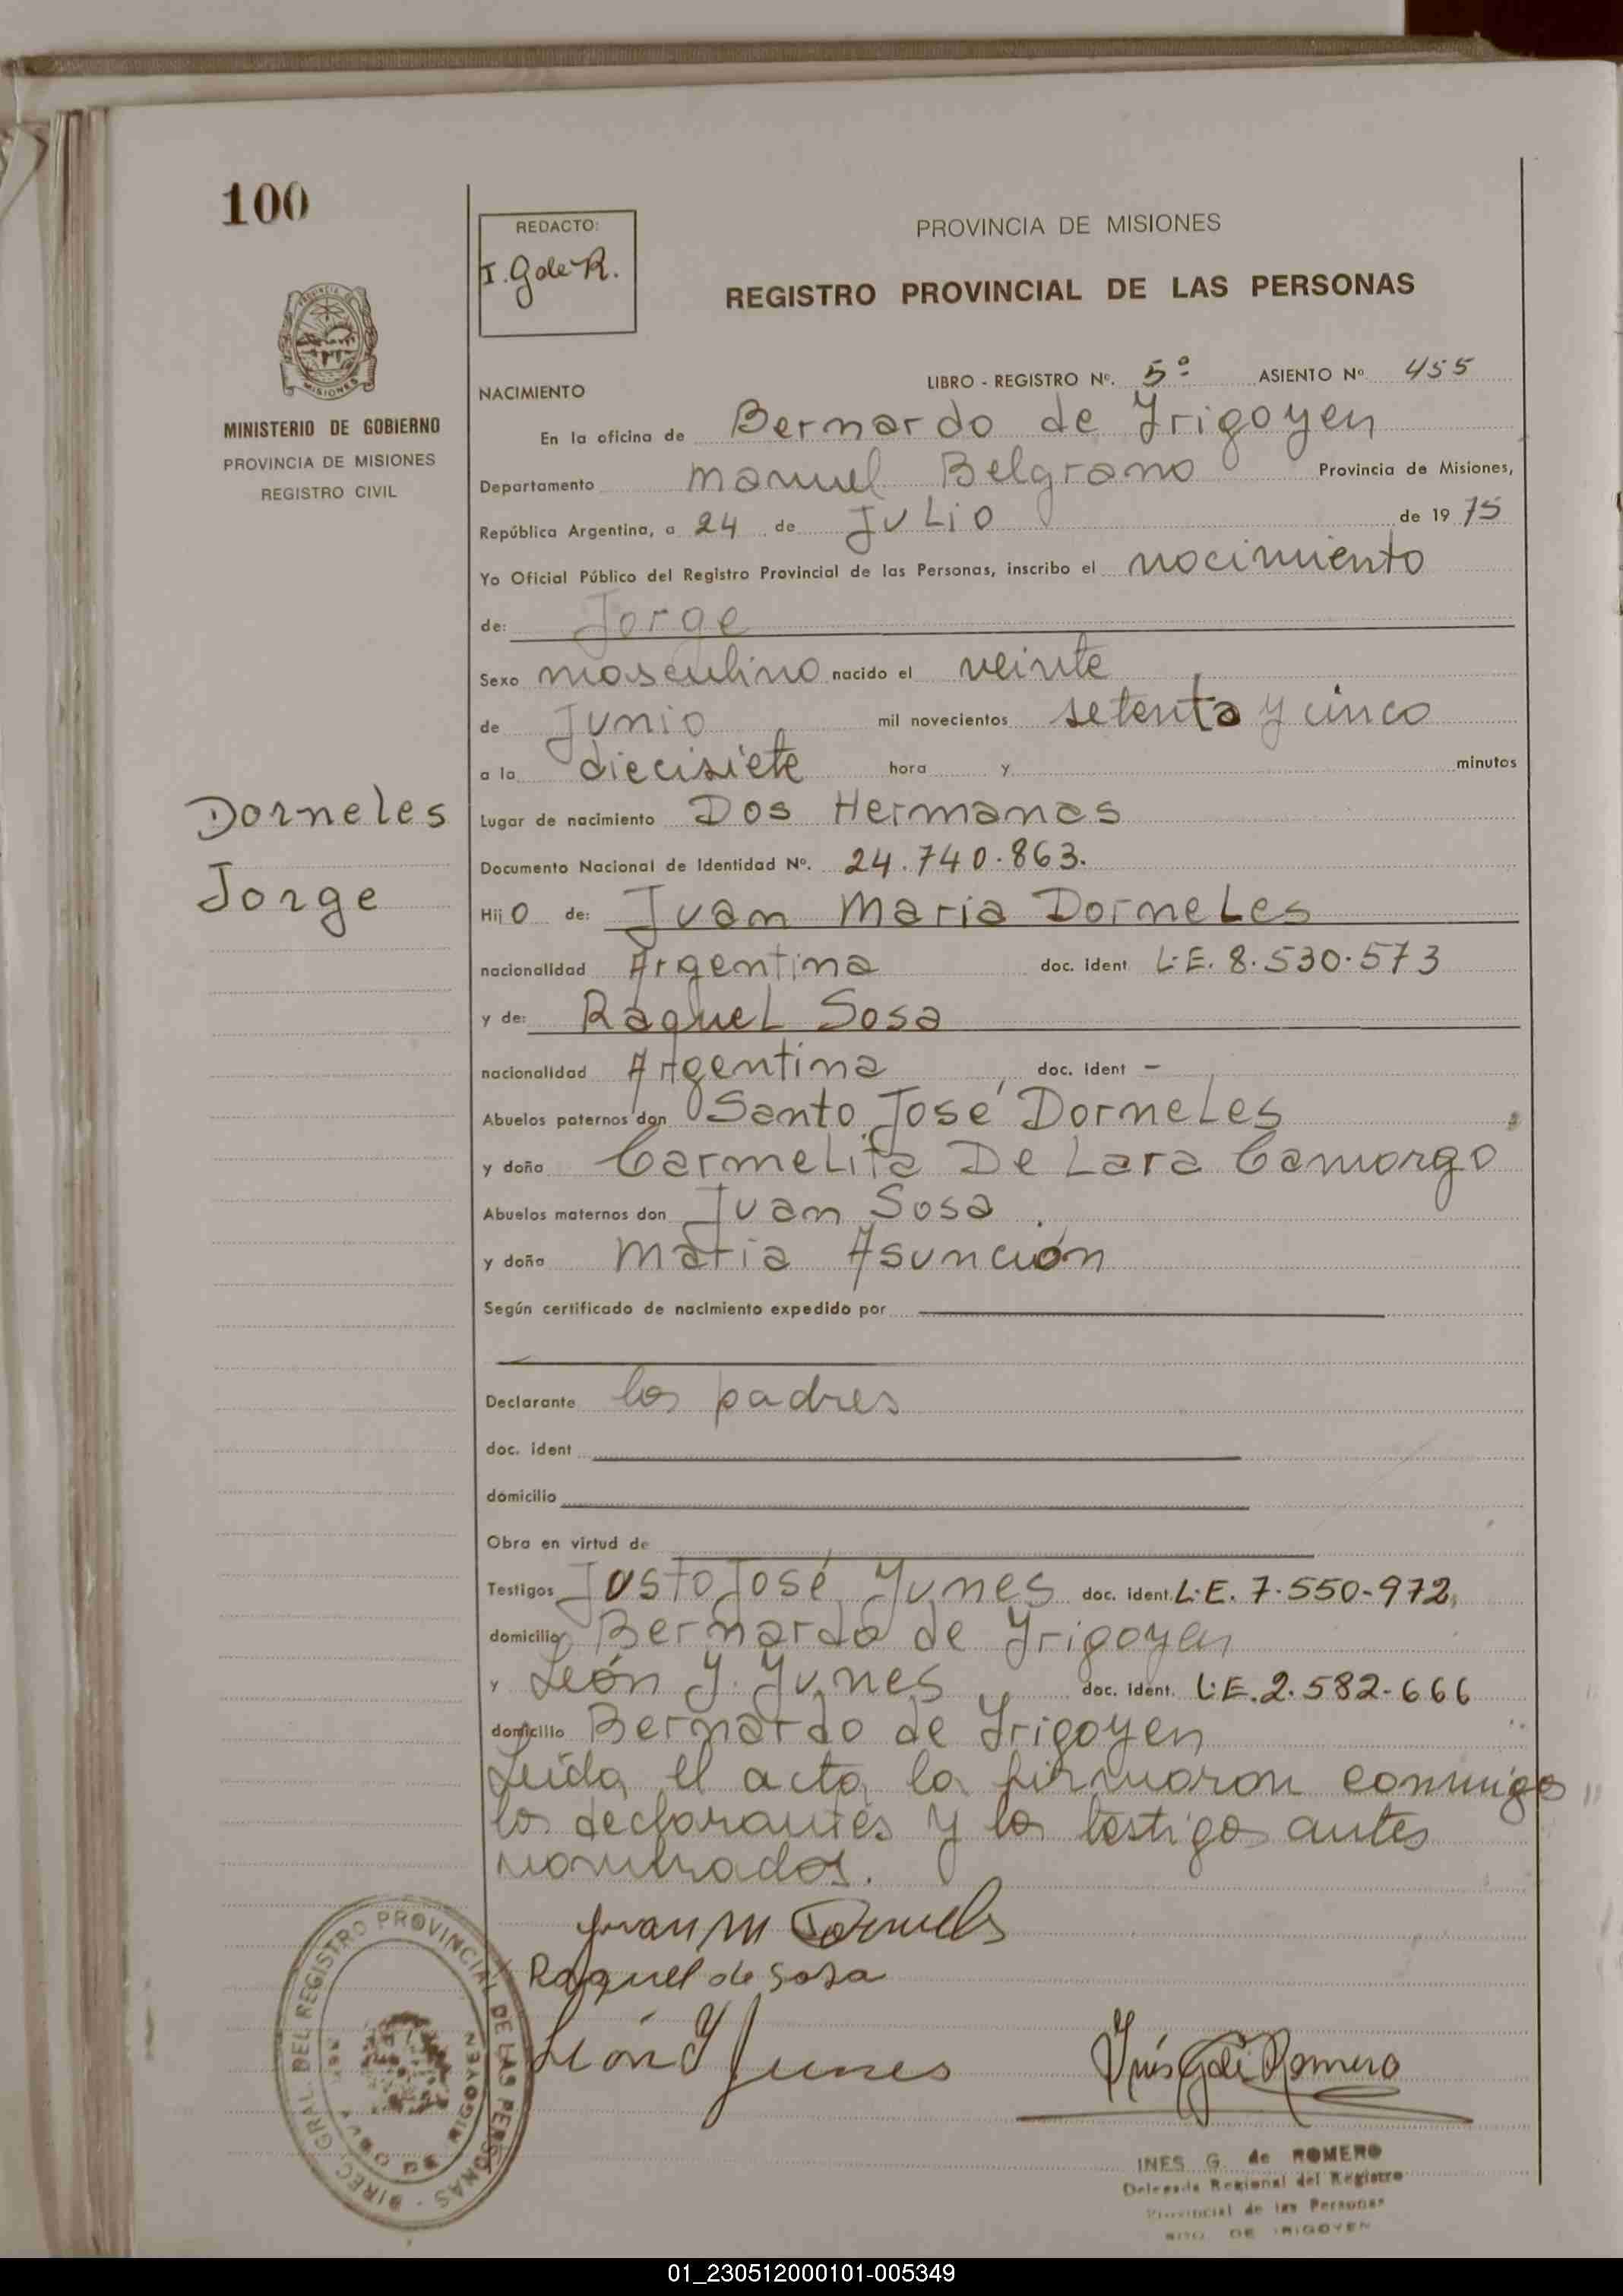 100
REDACTO:
I. G de R.
PROVINCIA DE MISIONES
REGISTRO PROVINCIAL DE LAS PERSONAS
MISIONES
MINISTERIO DE GOBIERNO
PROVINCIA DE MISIONES
REGISTRO CIVIL
NACIMIENTO LIBRO - REGISTRO Nº. 5º ASIENTO Nº 455
En la oficina de Bernardo de Yrigoyen
Departamento Manuel Belgrano Provincia de Misiones,
República Argentina, a 24 de Julio de 1975
Yo Oficial Público del Registro Provincial de las Personas, inscribo el nacimiento
de: Jorge
Sexo masculino nacido el veinte
de Junio mil novecientos setenta y cinco
a la diecisiete hora y minutos
Dorneles
Jorge
Lugar de nacimiento Dos Hermanas
Documento Nacional de Identidad Nº. 24.740.863.
Hijo de: Juan Maria Dorneles
nacionalidad Argentina doc. ident L.E. 8.530.573
y de: Raquel Sosa
nacionalidad Argentina doc. ident —
Abuelos paternos don Santo José Dorneles
y doña Carmelita De Lara Camorgo
Abuelos maternos don Juan Sosa
y doña Maria Asunción
Según certificado de nacimiento expedido por
Declarante los padres
doc. ident
domicilio
Obra en virtud de
Testigos Justo José Yunes doc. ident. L.E. 7.550-972
domicilio Bernardo de Yrigoyen
y León Y. Yunes doc. ident. L.E. 2.582-666
domicilio Bernardo de Yrigoyen
Leída el acta la firmaron conmigo
los declarantes y los testigos antes
nombrados.
Juan M Dorneles
Raquel de Sosa
León Y Yunes
Inés G de Romero
DIREC. GRAL. DEL REGISTRO PROVINCIAL DE LAS PERSONAS
BDO. DE IRIGOYEN
INES G. de ROMERO
Delegada Regional del Registro
Provincial de las Personas
BDO. DE IRIGOYEN
01_230512000101-005349